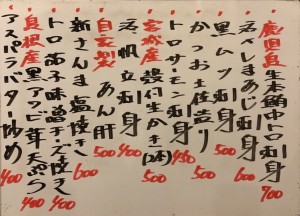 鹿児島生本鮪中トロ刺 700
活〆しまあじ刺身 600
黒ムツ刺身 500
かつお土佐造り 500
トロサーモン刺身 450
宮城産 殻付生かき 500
活帆立刺身 400
自家製あん肝 500
新さんま塩焼き 600
トロ茄子味噌チーズ焼 400
島根産黒アワビ茸天ぷら 400
アスパラバター炒め 400